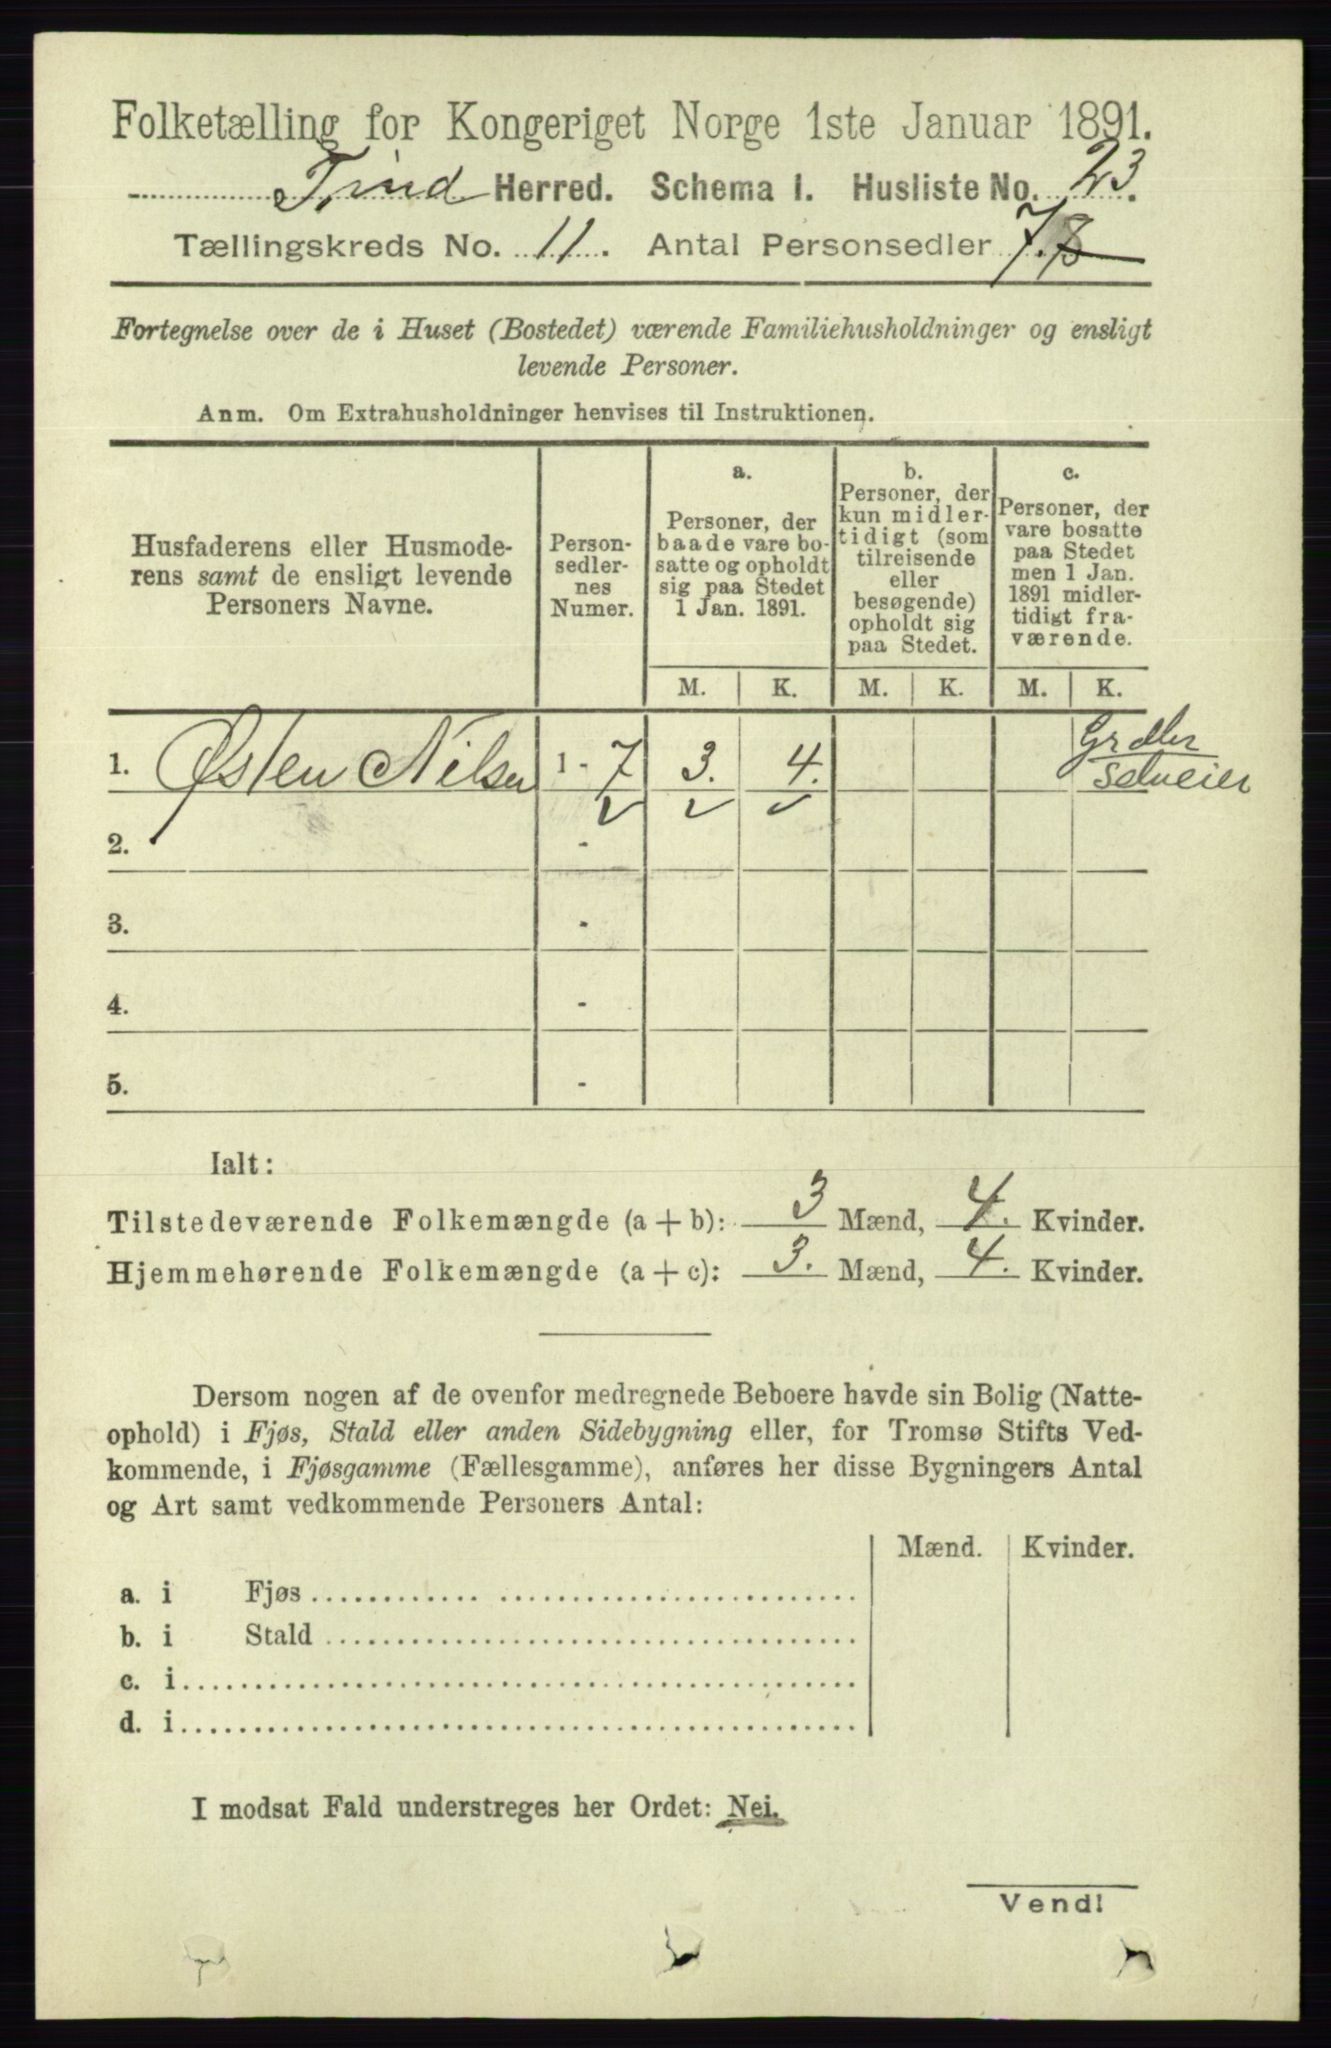 Folketælling for Kongeriget Norge 1ste Januar 1891.
Tind Herred. Schema I. Husliste No. 23.
Tællingskreds No. 11. Antal Personsedler 7. 8
Fortegnelse over de i Huset (Bostedet) værende Familiehusholdninger og ensligt
levende Personer.
Anm. Om Extrahusholdninger henvises til Instruktionen.
Husfaderens eller Husmode-
rens samt de ensligt levende
Personers Navne.
Person-
sedler-
nes
Numer.
a.
Personer, der
baade vare bo-
satte og opholdt
sig paa Stedet
1 Jan. 1891.
b.
Personer, der
kun midler-
tidigt (som
tilreisende
eller
besøgende)
opholdt sig
paa Stedet.
c.
Personer, der
vare bosatte
paa Stedet
men 1 Jan.
1891 midler-
tidigt fra-
værende.
M. K. M. K. M. K.
1. Østen Nilsen 1 - 7 3. 4.
Grdbr
Selveier
2. -
3. -
4. -
5. -
Ialt:
Tilstedeværende Folkemængde (a + b): 3 Mænd, 4. Kvinder.
Hjemmehørende Folkemængde (a + c): 3. Mænd, 4. Kvinder.
Dersom nogen af de ovenfor medregnede Beboere havde sin Bolig (Natte-
ophold) i Fjøs, Stald eller anden Sidebygning eller, for Tromsø Stifts Ved-
kommende, i Fjøsgamme (Fællesgamme), anføres her disse Bygningers Antal
og Art samt vedkommende Personers Antal:
Mænd. Kvinder.
a. i Fjøs
b. i Stald
c. i
d. i
I modsat Fald understreges her Ordet: Nei.
Vend!